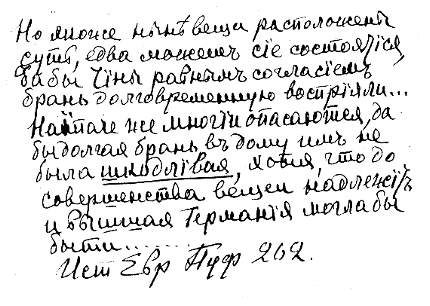 Но множе ныне вещи расположены
суть, едва можемъ сiе состоятiся
да бы Чины равнымъ согласiемъ
брань долговременную востріяли...
Наіпаче же многiи опасаются, да
бы долгая брань въ дому имъ не
была шкодлівая, хотя, что до
совершенства вещеи надлежiтъ
и вышшая Германiя могла бы
быти.......
Ист Евр Пуф 262.